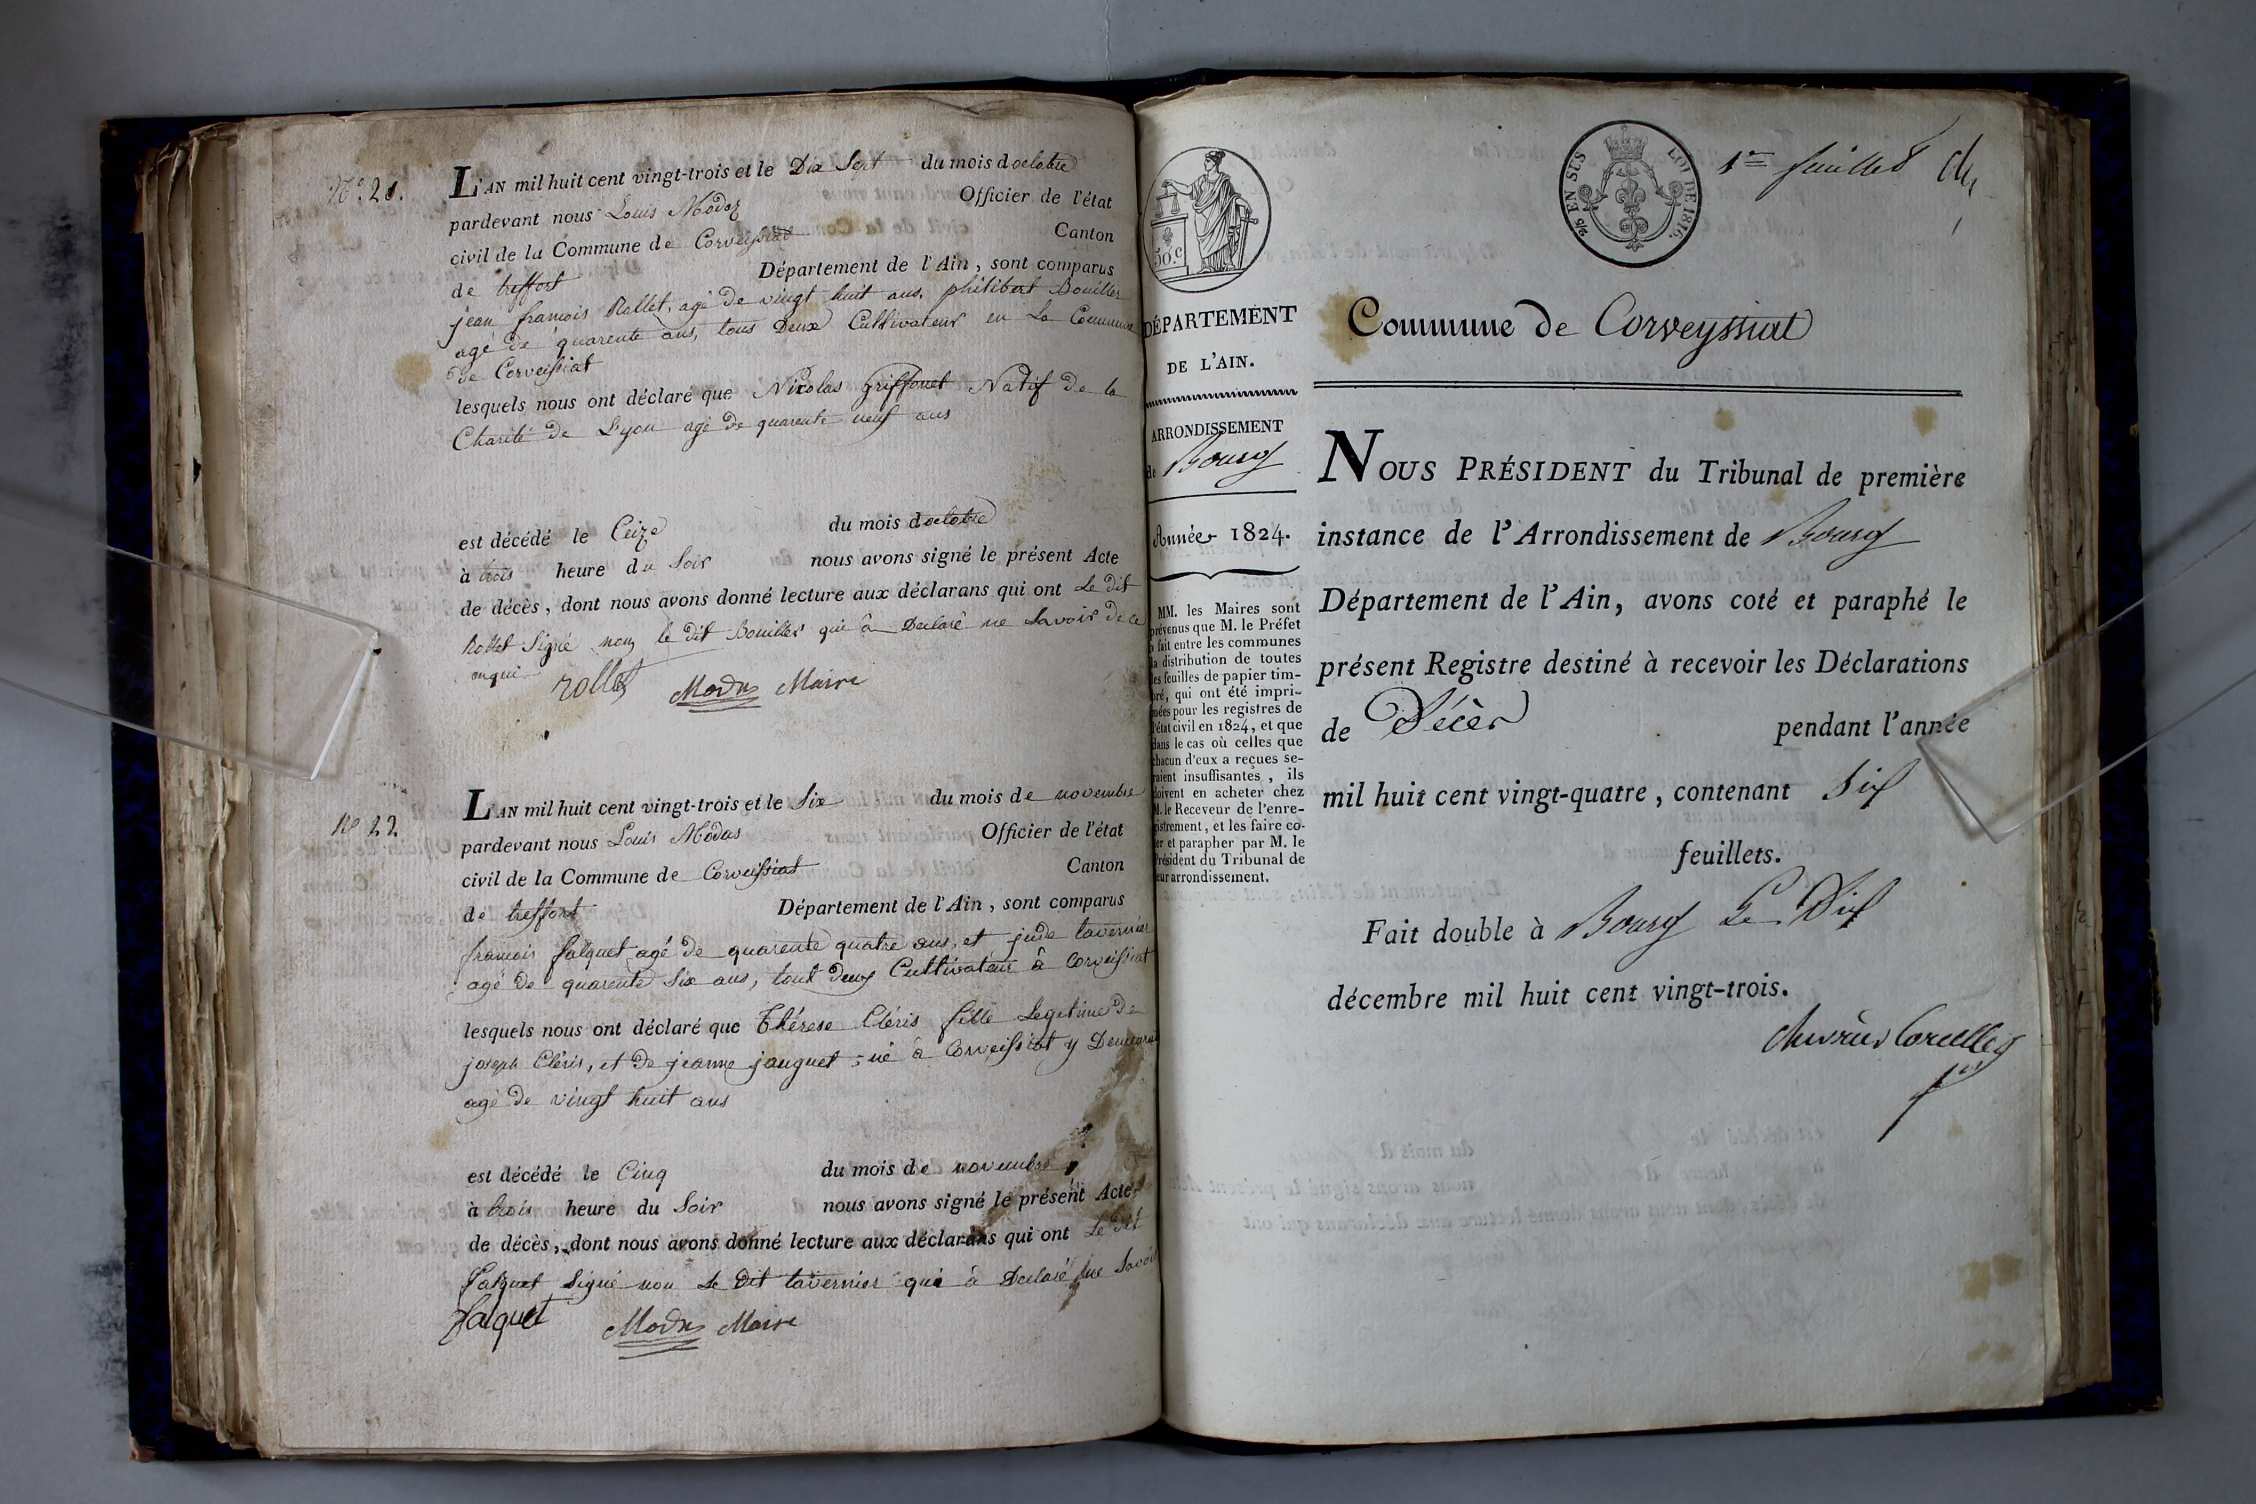 N°. 21.
L'AN mil huit cent vingt-trois et le Dix Sept du mois doctobre
pardevant nous Louis Modas Officier de l'état
civil de la Commune de Corveissiat Canton
de treffort Département de l'Ain, sont comparus
jean francois Rollet, agé de vingt huit ans, philibert Bouiller
agé de quarente ans, tous Deux Cultivateur en La Commune
de Corveissiat
lesquels nous ont déclaré que Nicolas Griffonet Natif de la
Charité de Lyon agé de quarente neuf ans
est décédé le Ceize du mois doctobre
à trois heure du Soir nous avons signé le présent Acte
de décès, dont nous avons donné lecture aux déclarans qui ont Le dit
Rollet Signé non le dit Bouiller qui à Declaré ne Savoir de ce
enquis
rollet Modas Maire
N° 22
L'AN mil huit cent vingt-trois et le Six du mois de novembre
pardevant nous Louis Modas Officier de l'état
civil de la Commune de Corveissiat Canton
de treffort Département de l'Ain, sont comparus
francois falquet agé de quarente quatre ans, et jude tavernier
agé de quarente Six ans, tout deux Cultivateur à Corveissiat
lesquels nous ont déclaré que Thérese Cléris fille Legitime De
joseph Cléris, et de jeanne janguet, né à Corveissiat y Demeurant
agé de vingt huit ans
est décédé le Cinq du mois de novembre
à trois heure du Soir nous avons signé le présent Acte
de décès, dont nous avons donné lecture aux déclarans qui ont Le dit
falquet Signé non Le Dit tavernier qui à Declaré ne Savoir
falquet Modas Maire
5/5 EN SUS LOI DE 1816.
1er feuillet
50.c
Commune de Corveyssiat
DÉPARTEMENT
DE L'AIN.
ARRONDISSEMENT
de Bourg
Année 1824.
MM. les Maires sont
prévenus que M. le Préfet
a fait entre les communes
la distribution de toutes
les feuilles de papier tim-
bré, qui ont été impri-
mées pour les registres de
l'état civil en 1824, et que
dans le cas où celles que
chacun d'eux a reçues se-
raient insuffisantes, ils
doivent en acheter chez
M. le Receveur de l'enre-
gistrement, et les faire co-
ter et parapher par M. le
Président du Tribunal de
leur arrondissement.
NOUS PRÉSIDENT du Tribunal de première
instance de l'Arrondissement de Bourg
Département de l'Ain, avons coté et paraphé le
présent Registre destiné à recevoir les Déclarations
de Décès pendant l'année
mil huit cent vingt-quatre, contenant Six
feuillets.
Fait double à Bourg Le Dix
décembre mil huit cent vingt-trois.